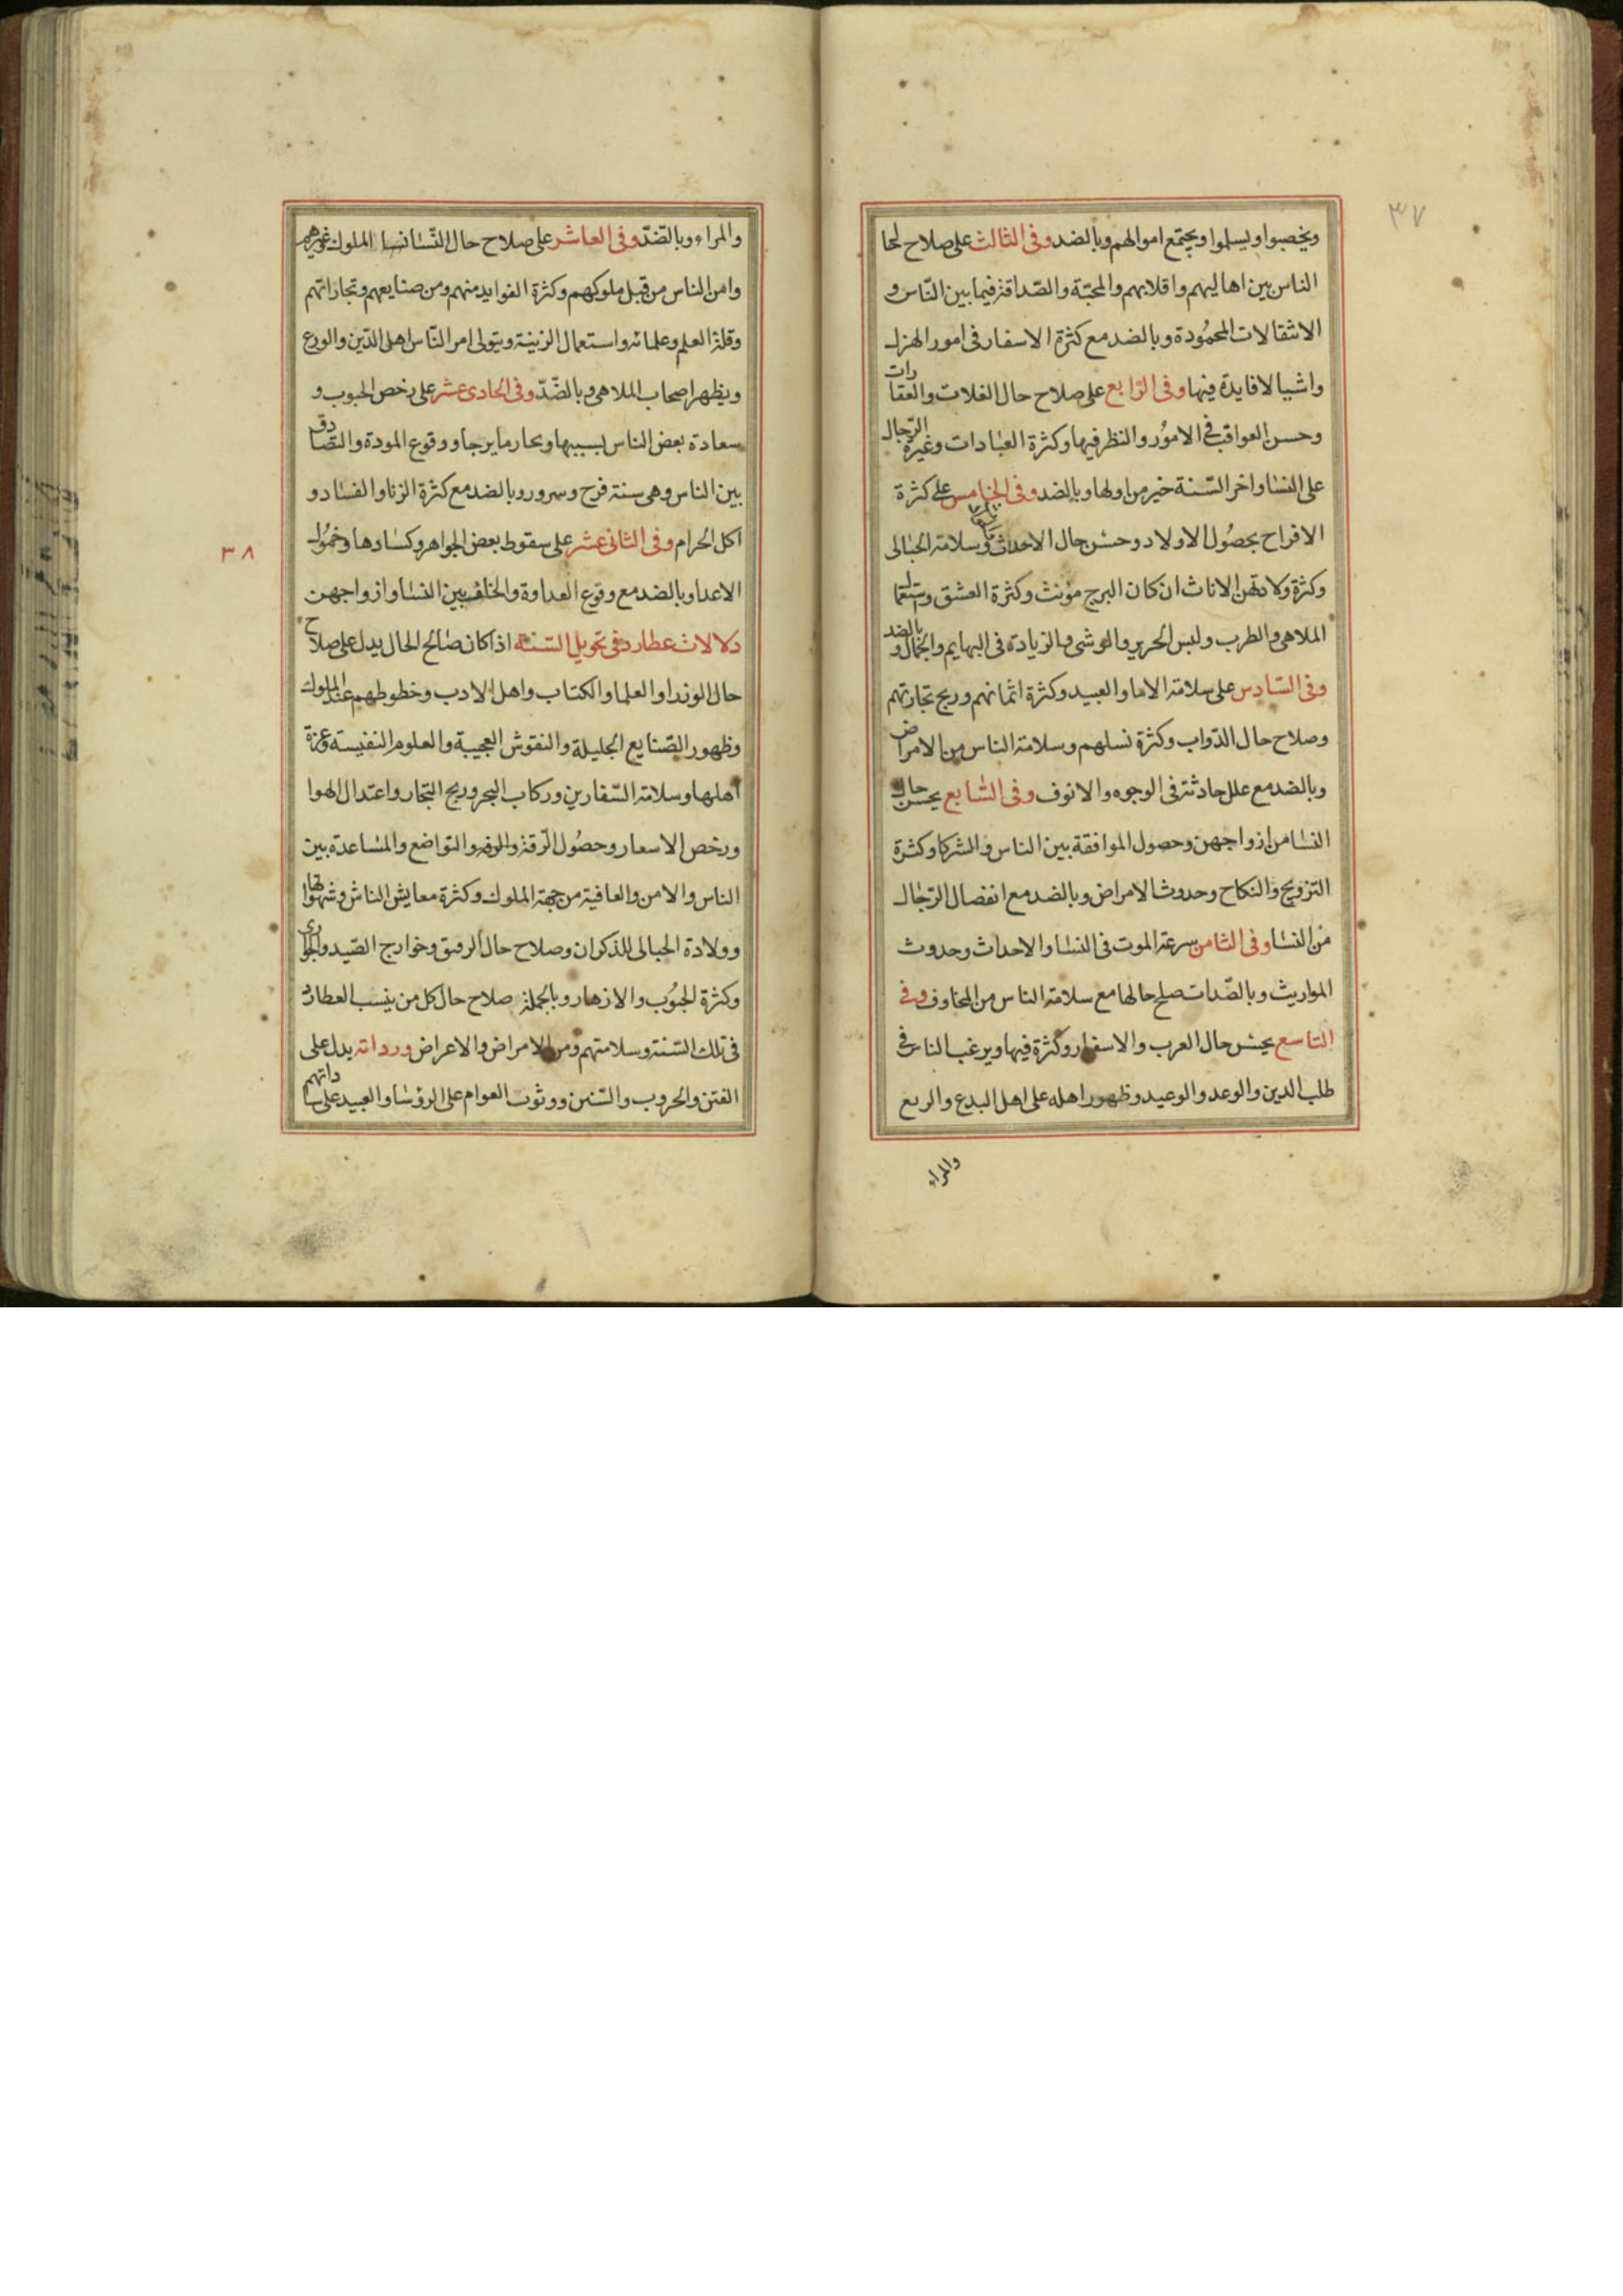 ٣٧
ويخصبوا ويسلموا ويجتمع اموالهم وبالضد وفى الثالث على صلاح لحا
الناس بين اهاليهم واقلابهم والمحبّة والصّداقة فيما بين النّاس و
الانتقالات المحمُودة وبالضد مع كثرة الاسفار فى امور الهزل
واشيا لا فايدة فيها وفى الرّابع على صلاح حال الغلات والعقارات
وحسن العواقب فى الامُور والنظر فيها وكثرة العبادات وغيرة الرّجال
على النسا واخر السّنة خير من اولها وبالضد وفى الخامس على كثرة
الافراح بحصُول الاولاد وحسْن حال الاحداث وسلامة الحبالى
وكثرة ولادتهن الاناث ان كان البرج مؤنث وكثرة العشق واستعمال
الملاهى والطرب ولبس الحرير والوشى والزيادة فى البهايم والجمال وبالضد
وفى السّادس على سلامة الاما والعبيد وكثرة اثمانهم وربح تجارتهم
وصلاح حال الدّواب وكثرة نسلهم وسلامة الناس من الامراض
وبالضد مع علل حادثة فى الوجوه والانوف وفى السّابع يحسن حال
النسا من ازواجهن وحصول الموافقة بين الناس والشركا وكثرة
التزويج والنكاح وحدوث الامراض وبالضد مع انفصال الرّجال
من النسا وفى الثامن سرعة الموت فى النسا والاحداث وحدوث
المواريث وبالضّد ات صلح حالها مع سلامة الناس من المخاوف وفى
التاسع يحسْن حال العرب والاسفار وكثرة فيها ويرغب الناس فى
طلب الدين والوعد والوعيد وظهور اهله على اهل البدع والريع
والمراء
والمراء وبالضّدّ وفى العاشر على صلاح حال النّسا نسا الملوك وغيرهم
وامن الناس من قبل ملوكهم وكثرة الفوايد منهم ومن صنايعهم وتجاراتهم
وقلة العلم وعلمائه واستعمال الزينة ويتولى امر النّاس اهل الدّين والورع
ويظهر اصحاب الملاهى وبالضّدّ وفى الحادى عشر على رخص الحبوب و
سعادة بعض الناس بسببها وبحار ما يرجا ووقوع المودة والتصادق
بين الناس وهى سنة فرح وسرور وبالضد مع كثرة الزنا والفساد و
اكل الحرام وفى الثانى عشر على سقوط بعض الجواهر وكسادها وخمُول
الاعدا وبالضد مع وقوع العداوة والخلف بين النسا وازواجهن
دلالات عطارد فى تحويل السّنة اذا كان صالح الحال يدل على صلاح
حال الوزرا والعلما والكتاب واهل الادب وخطوطهم عند الملوك
وظهور الصّنايع الجليلة والنقوش العجيبة والعلوم النفيسة وعزة
اهلها وسلامة السّفارين وركاب البحر وربح التجار واعتدال الهوا
ورخص الاسعار وحصُول الرّقة والوفر والتواضع والمساعدة بين
الناس والامن والعافية من جهة الملوك وكثرة معايش الناس وشهواتها
وولادة الحبالى للذكران وصلاح حال الرقيق وخوارج الصّيد والجوارى
وكثرة الحبُوب والازهار وبالجملة صلاح حال كل من ينسب العطارد
فى تلك السّنة وسلامتهم ومن الامراض والاعراض ورداته يدل على
الفتن والحروب والسّنن ووثوب العوام على الرؤسا والعبيد على ساداتهم
٣٨